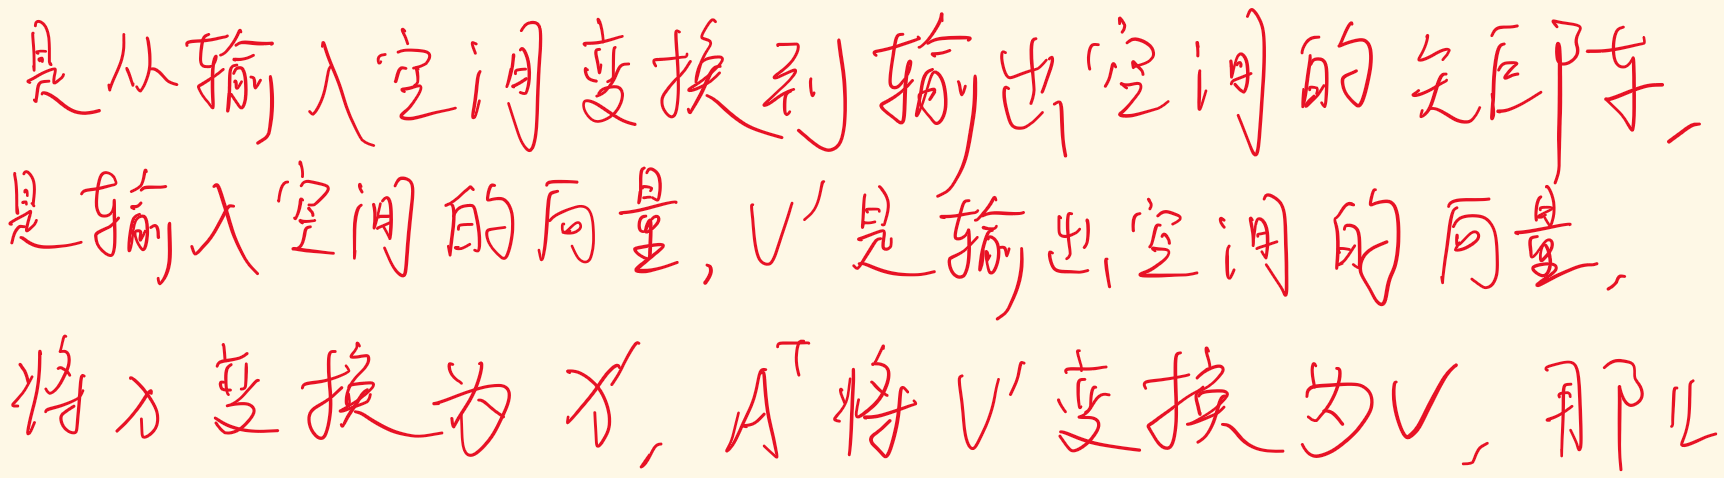 是从输入空间变换到输出空间的矩阵,
是输入空间的向量, V' 是输出空间的向量,
将 x 变换为 x', Aᵀ 将 V' 变换为 V, 那